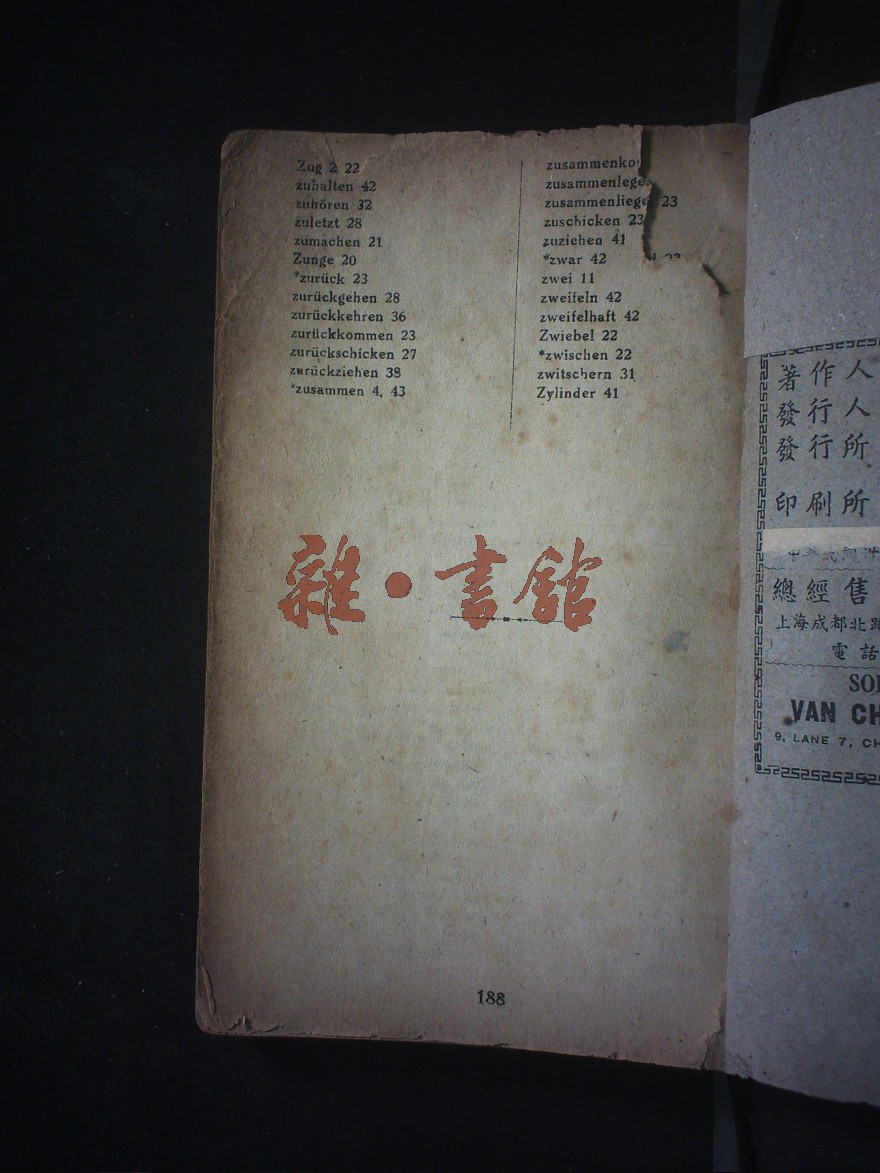 Zug 2 22
zuhalten 42
zuhören 32
zuletzt 28
zumachen 21
Zunge 20
*zurück 23
zurückgehen 28
zurückkehren 36
zurückkommen 23
zurückschicken 27
zurückziehen 38
*zusammen 4, 43
zusammenko
zusammenlege
zusammenliege 23
zuschicken 23
zuziehen 41
*zwar 42
zwei 11
zweifeln 42
zweifelhaft 42
Zwiebel 22
*zwischen 22
zwitschern 31
Zylinder 41
雜·書館
188
著作人
發行人
發行所
印刷所
總經售
上海成都北路
電話
SOL
VAN CH
9, LANE 7, CH